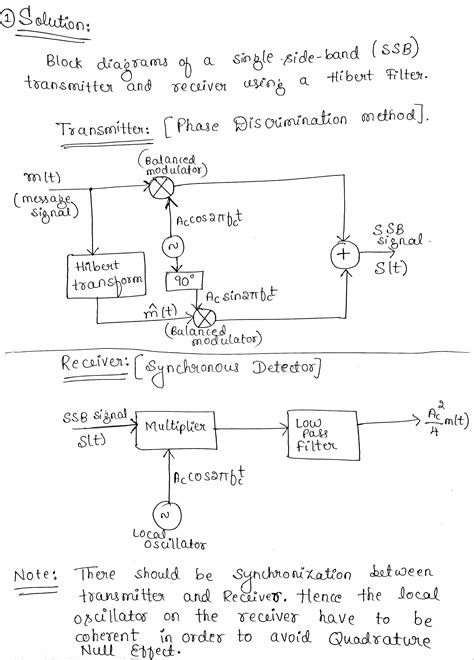 ① Solution:
Block diagrams of a single-side-band (SSB)
transmitter and receiver using a Hibert Filter.
Transmitter: [Phase Discrimination method].
(Balanced
modulator)
m(t)
(message
signal)
A_c cos 2πf_c t
~
90°
A_c sin 2πf_c t
Hibert
transform
m̂(t)
(Balanced
modulator)
+
SSB
signal.
S(t)
Receiver: [Synchronous Detector]
SSB signal
S(t)
Multiplier
Low
Pass
Filter
A_c²/4 m(t)
A_c cos 2πf_c t
~
Local
oscillator
Note: There should be synchronization between
transmitter and Receiver. Hence the local
oscillator on the receiver have to be
coherent in order to avoid Quadrature
Null Effect.